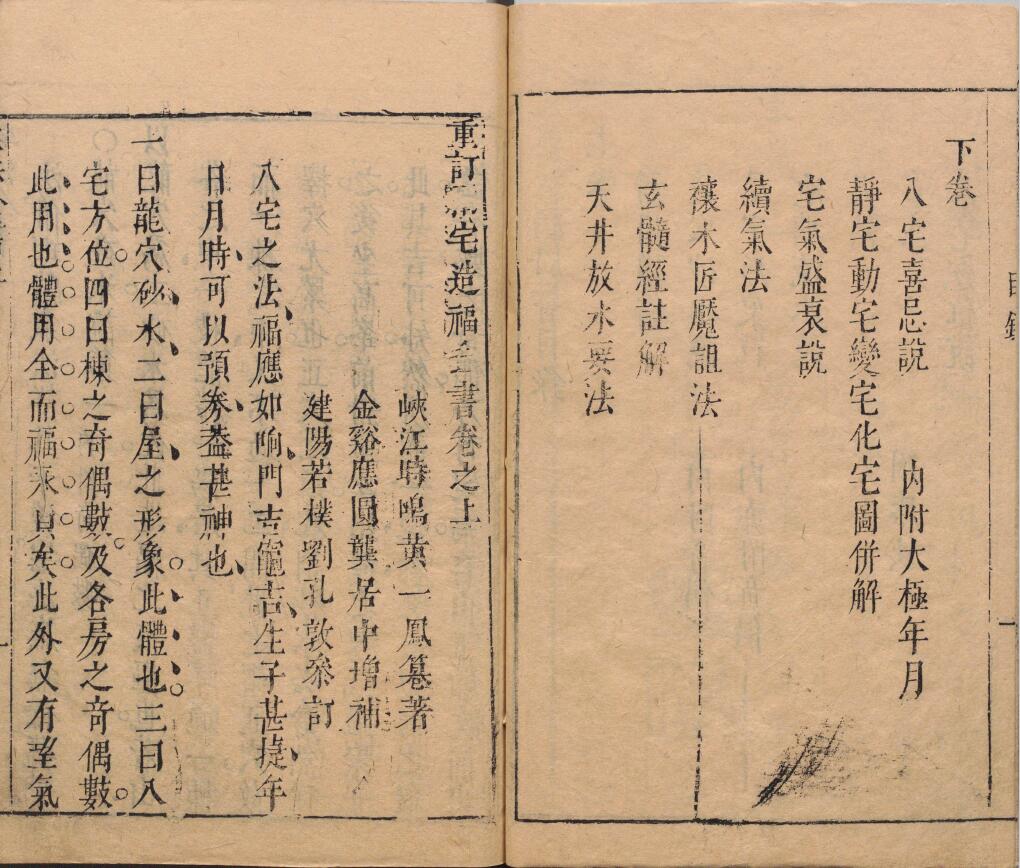 下卷
八宅喜忌說 內附大極年月
靜宅動宅變宅化宅圖併解
宅氣盛衰說
續氣法
禳木匠魘詛法
玄髓經註解
天井放水要法
重訂宅造福全書卷之上
峽江時鳴黃一鳳纂著
金谿應圓龔居中增補
建陽若樸劉孔敦叅訂
八宅之法福應如响門吉竈吉生子甚㨗年
日月時可以預券葢甚神也
一曰龍穴砂水二曰屋之形象此體也三曰八
宅方位四曰棟之奇偶數及各房之奇偶數
此用也體用全而福永貞矣此外又有望氣